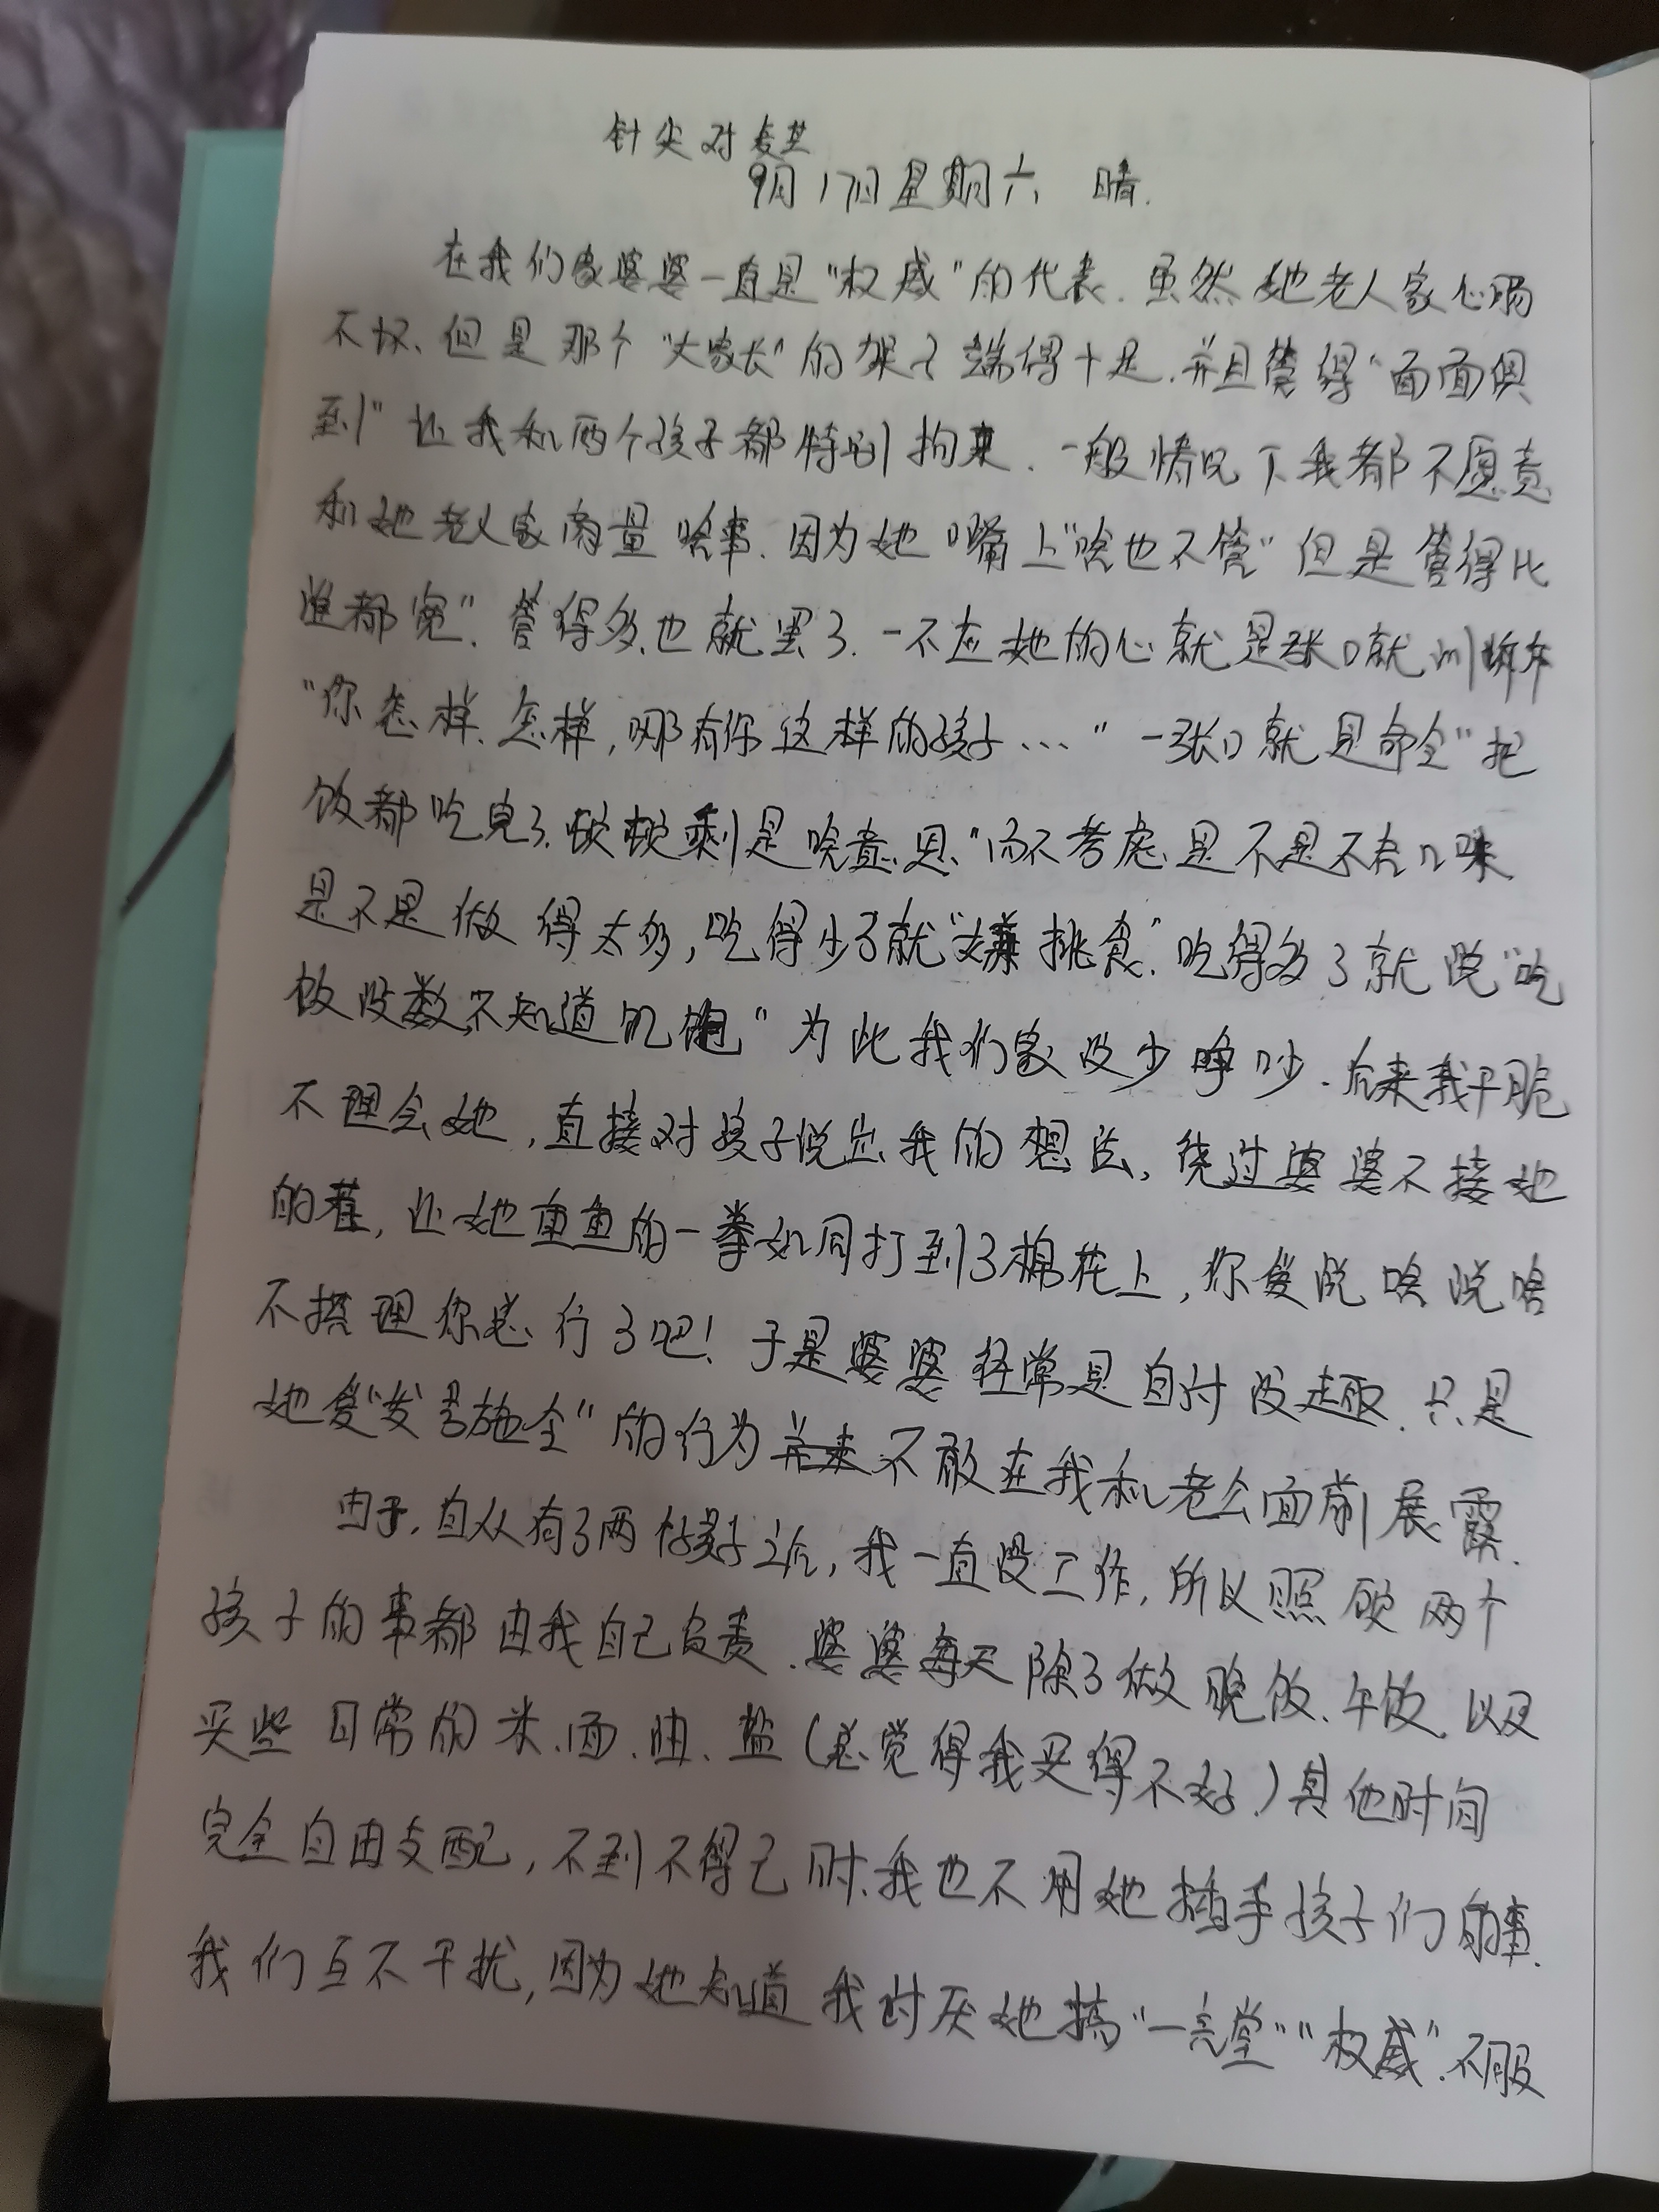 针尖对麦芒
9月17日星期六 晴.
在我们家婆婆一直是"权威"的代表.虽然她老人家心肠
不坏、但是那个"大家长"的架子端得十足.并且管得"面面俱
到"让我和两个孩子都特别拘束.一般情况下我都不愿意
和她老人家商量啥事.因为她嘴上"啥也不管"但是管得比
谁都宽".管得多也就罢了.一不应她的心就是张口就训斥
"你怎样、怎样,哪有你这样的孩子…"一张口就是命令"把
饭都吃完了.顿顿剩是啥意思"而不考虑是不是不合口味
是不是做得太多,吃得少了就"嫌挑食".吃得多了就说"吃
饭没数,不知道饥饱"为此我们家没少争吵.后来我干脆
不理会她,直接对孩子说出我的想法,绕过婆婆不接她
的茬,让她重重的一拳如同打到了棉花上,你爱说啥说啥
不搭理你总行了吧!于是婆婆经常是自讨没趣.只是
她爱"发号施令"的行为 不敢在我和老公面前展露.
由于,自从有了两个孩子之后,我一直没工作,所以照顾两个
孩子的事都由我自己负责.婆婆每天除了做晚饭、午饭.以及
买些日常的米、面、油、盐(总觉得我买得不好.)其他时间
完全自由支配,不到不得已时、我也不用她插手孩子们的事.
我们互不干扰,因为她知道我讨厌她搞"一言堂""权威".不服